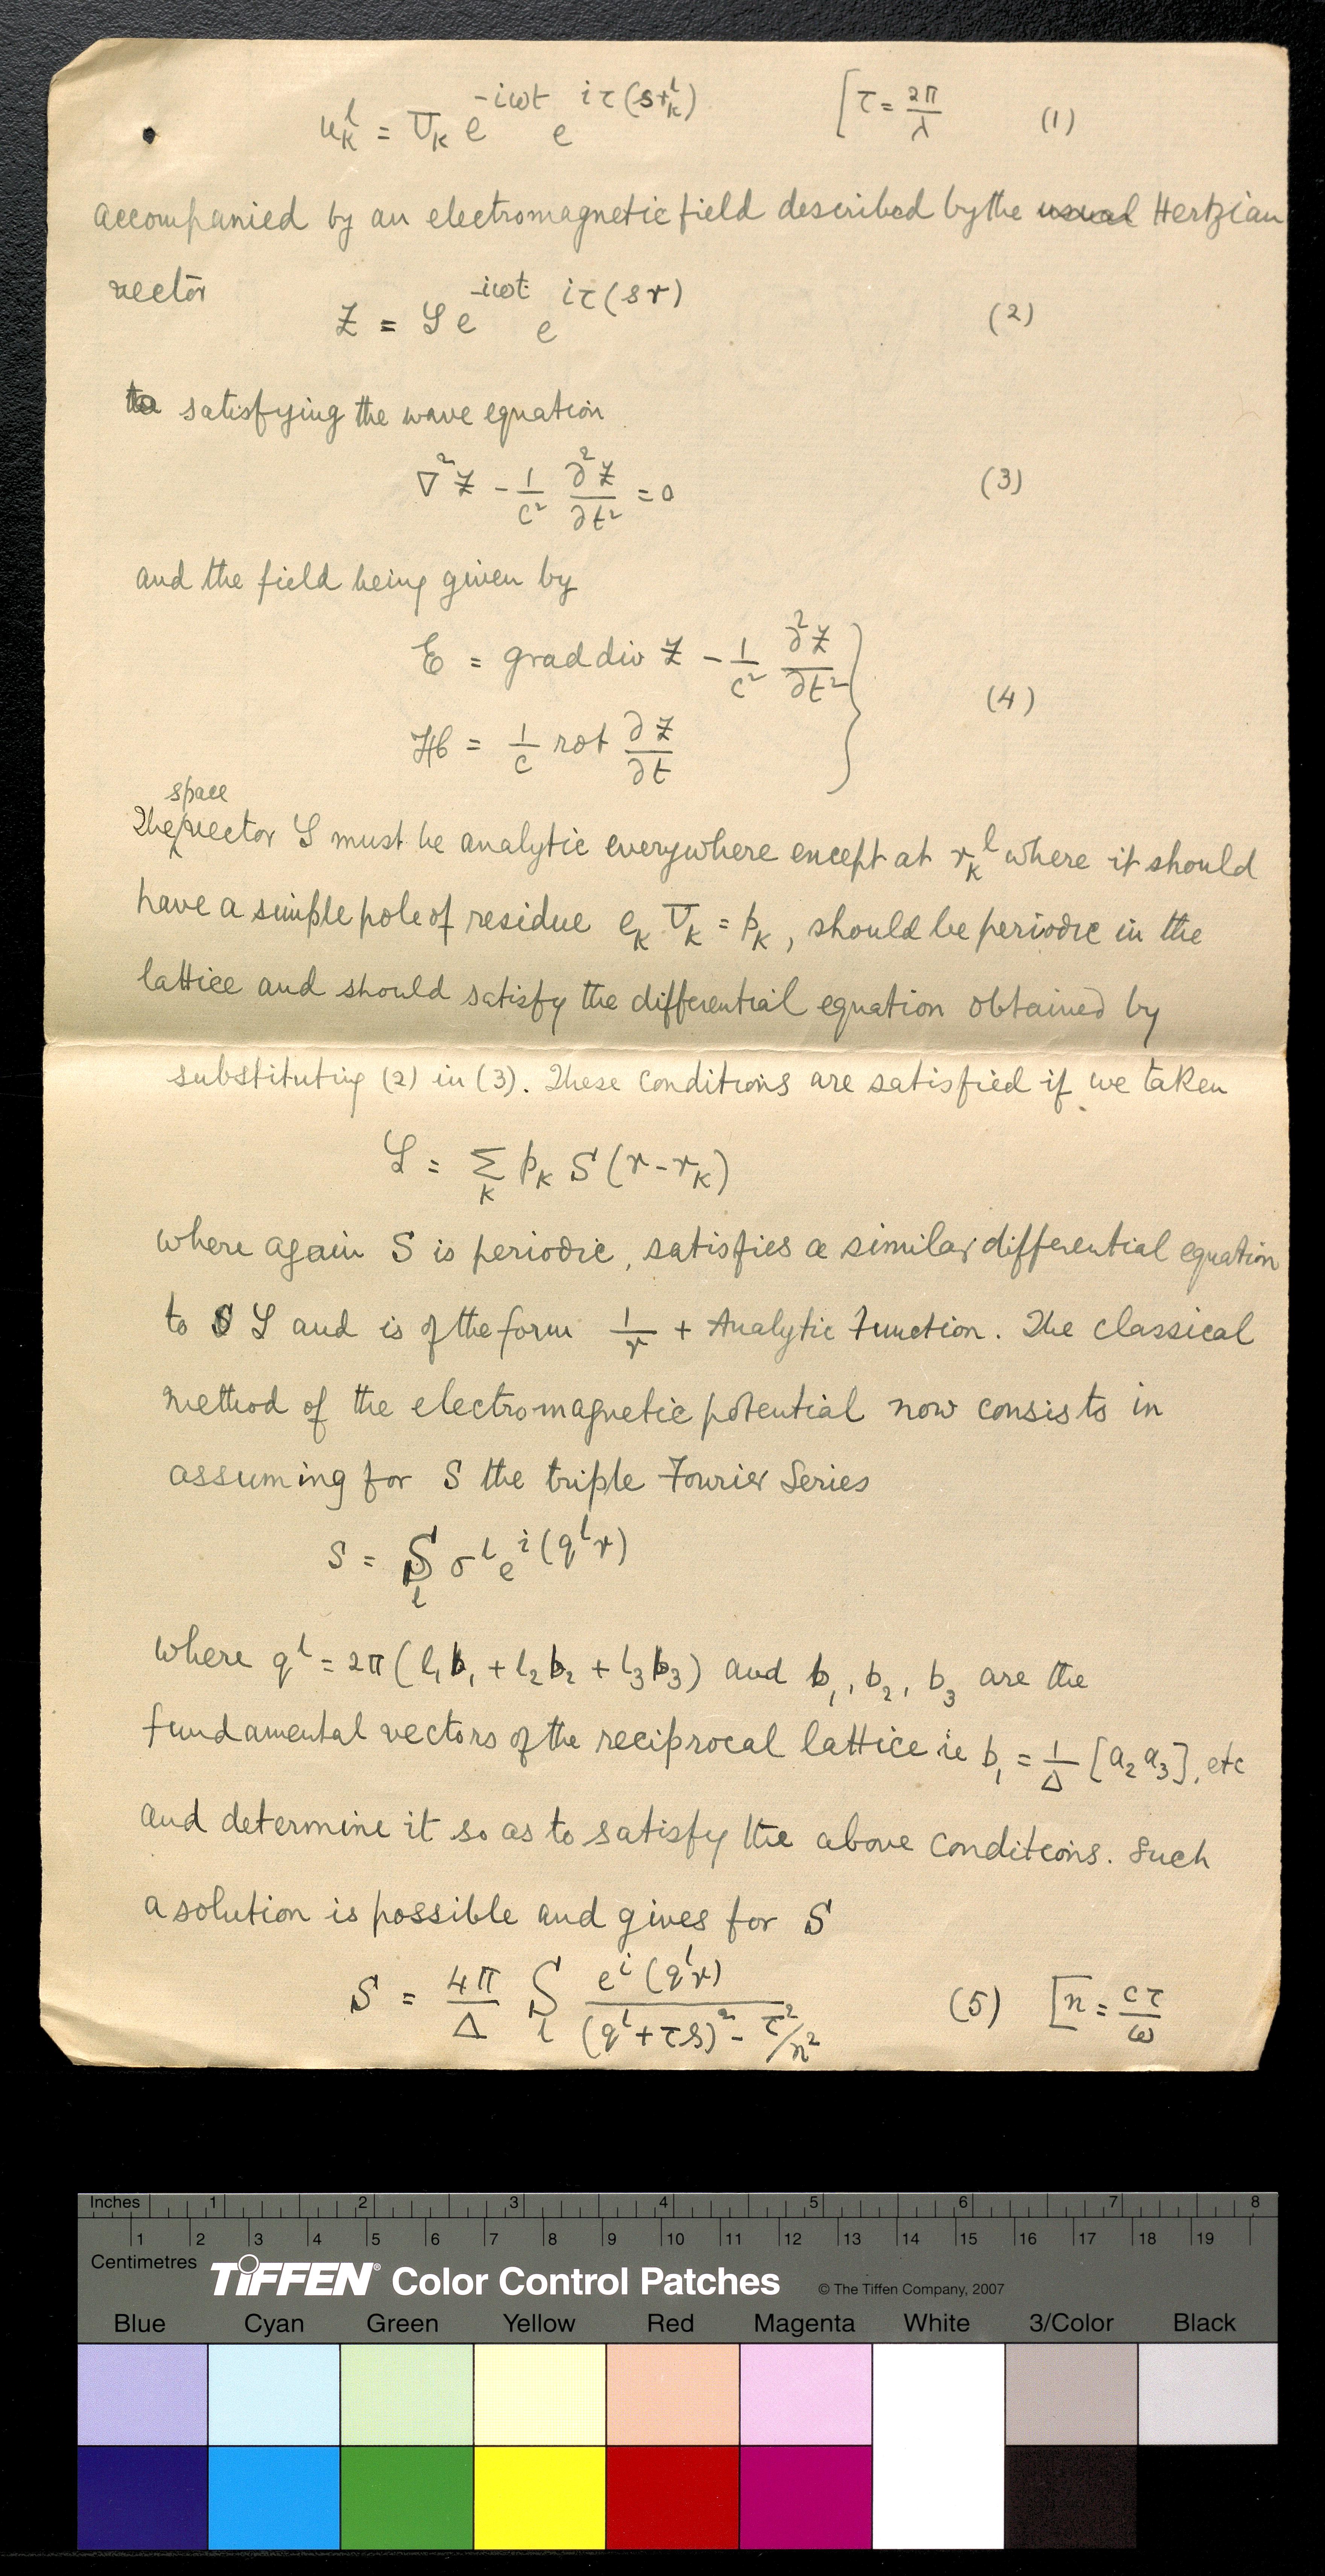 u_k^l = U_k e^{-iωt} e^{iτ(s r_k^l)} [τ = 2π/λ (1)
accompanied by an electromagnetic field described by the usual Hertzian
vector
Z = 𝒮 e^{-iωt} e^{iτ(sr)} (2)
to satisfying the wave equation
∇²Z - 1/c² ∂²Z/∂t² = 0 (3)
and the field being given by
E = grad div Z - 1/c² ∂²Z/∂t²
H = 1/c rot ∂Z/∂t } (4)
space
The vector 𝒮 must be analytic everywhere except at r_k^l where it should
have a simple pole of residue e_k U_k = p_k, should be periodic in the
lattice and should satisfy the differential equation obtained by
substituting (2) in (3). These conditions are satisfied if we taken
𝒮 = Σ_k p_k S(r-r_k)
where again S is periodic, satisfies a similar differential equation
to S 𝒮 and is of the form 1/r + Analytic Function. The classical
method of the electromagnetic potential now consists in
assuming for S the triple Fourier Series
S = S_l σ^l e^{i(q^l r)}
where q^l = 2π(l₁b₁ + l₂b₂ + l₃b₃) and b₁, b₂, b₃ are the
fundamental vectors of the reciprocal lattice ie b₁ = 1/Δ [a₂ a₃], etc
and determine it so as to satisfy the above conditions. Such
a solution is possible and gives for S
S = 4π/Δ S_l e^{i(q^l r)}/((q^l + τs)² - τ²/n²) (5) [n = cτ/ω
Inches 1 2 3 4 5 6 7 8
1 2 3 4 5 6 7 8 9 10 11 12 13 14 15 16 17 18 19
Centimetres
TIFFEN® Color Control Patches © The Tiffen Company, 2007
Blue Cyan Green Yellow Red Magenta White 3/Color Black